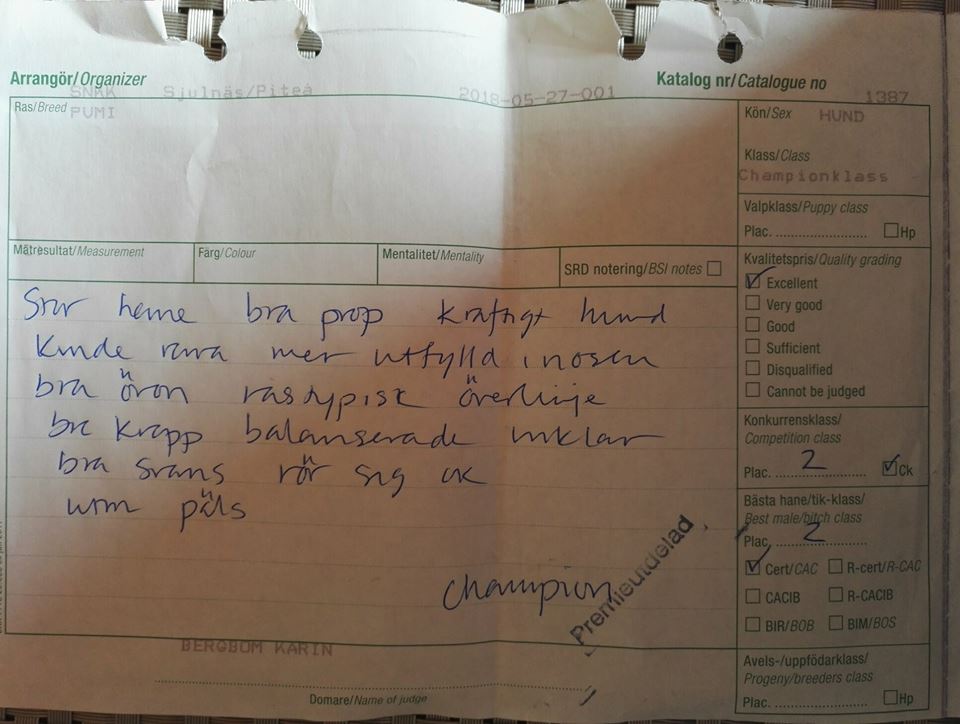 Arrangör/Organizer
Katalog nr/Catalogue no
SNKK Sjulnäs/Piteå 2018-05-27-001 1387
Ras/Breed PUMI
Kön/Sex HUND
Klass/Class
Championklass
Valpklass/Puppy class
Plac. Hp
Mätresultat/Measurement
Färg/Colour
Mentalitet/Mentality
SRD notering/BSI notes
Kvalitetspris/Quality grading
Excellent
Very good
Good
Sufficient
Disqualified
Cannot be judged
Stor hanne bra prop kraftigt hund
Kunde vara mer utfylld i nosen
bra öron rastypisk överlinje
bra kropp balanserade vinklar
bra svans rör sig ok
päls
champion
Premieutdelad
Konkurrensklass/
Competition class
Plac. 2 Ck
Bästa hane/tik-klass/
Best male/bitch class
Plac. 2
Cert/CAC R-cert/R-CAC
CACIB R-CACIB
BIR/BOB BIM/BOS
Avels-/uppfödarklass/
Progeny/breeders class
Plac. Hp
BERGBOM KARIN
Domare/Name of judge